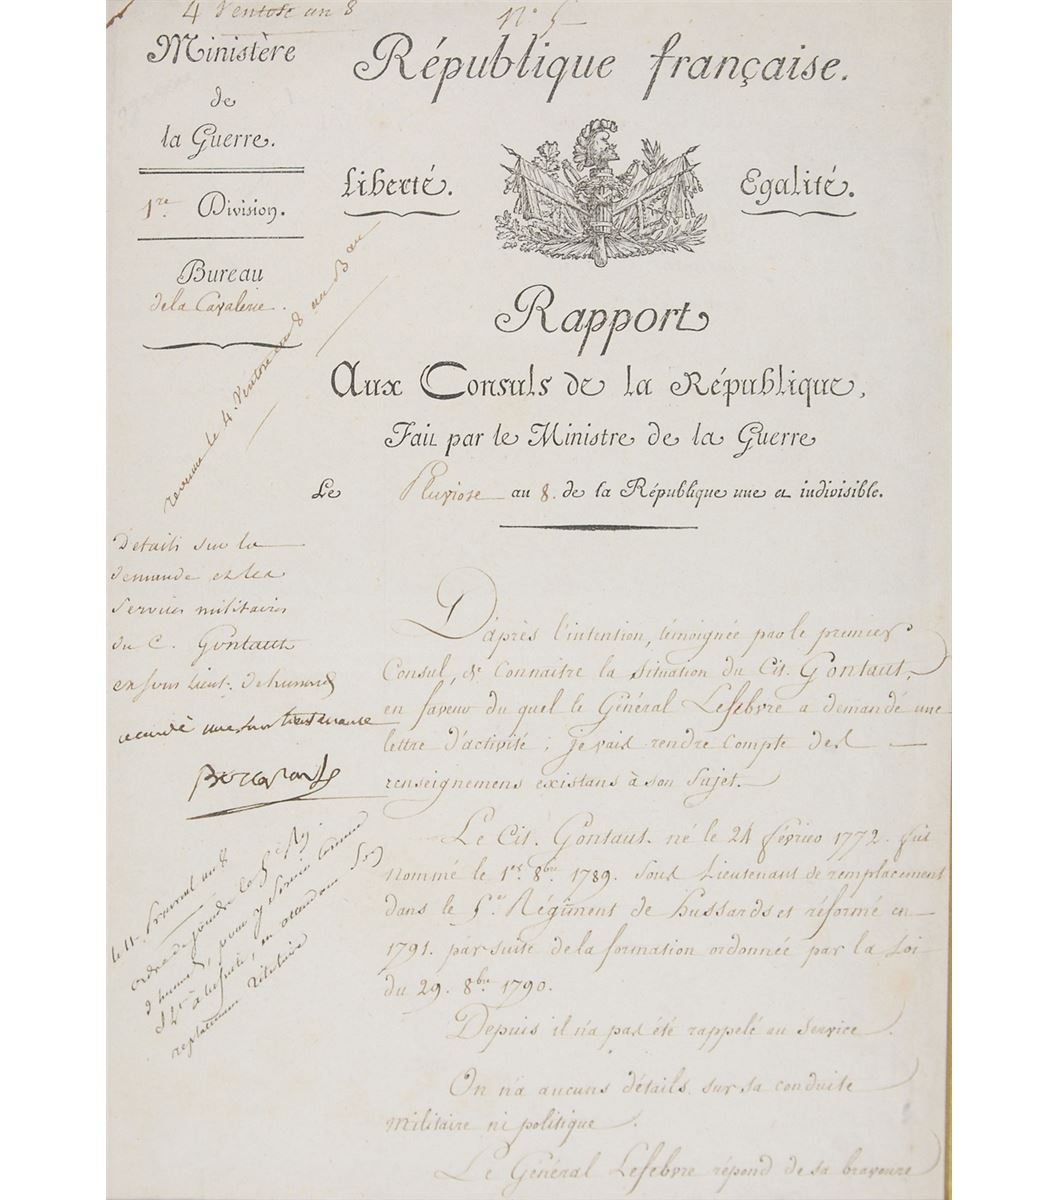 4 Ventose an 8
N.º 5
Ministère
de
la Guerre.
1.re Division.
Bureau
de la Cavalerie.
République française.
Liberté.
Egalité.
Rapport
Aux Consuls de la République,
Fait par le Ministre de la Guerre
Le Pluviose an 8. de la République une et indivisible.
revenu le 4 Ventose an 8 au Bau
Details sur la
demande et les
services militaires
du C. Gontaut
ex sous Lieut. de hussards
accordé une sous lieutenance
D'après l'intention, témoignée par le premier
Consul, de Connaitre la Situation du Cit. Gontaut,
en faveur du quel le Général Lefebvre a demandé une
lettre d'activité; je vais rendre Compte des
renseignemens existans à son Sujet.
Le Cit. Gontaut né le 24 février 1772. fut
nommé le 1er. 8bre. 1789. Sous Lieutenant de remplacement
dans le 5e. Régiment de hussards et réformé en
1791. par suite de la formation ordonnée par la Loi
du 29. 8bre 1790.
Depuis il n'a pas été rappelé au Service.
On n'a aucuns détails sur sa conduite
militaire ni politique.
Le Général Lefebvre répond de sa bravoure
le 11 an 8
ordre de joindre le 5e
d'hussards, pour y
à la suite, en attendant son
remplacement titulaire